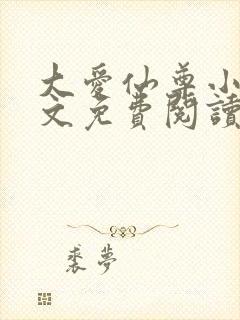 大愛仙尊小
文免費閱讀
裘夢